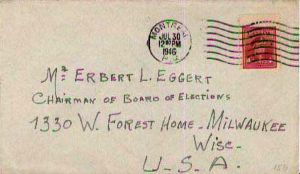 MONTREAL
JUL 30
12 30 PM
1946
P.Q.
Mr ERBERT L. EGGERT
CHAIRMAN OF BOARD OF ELECTIONS
1330 W. FOREST HOME - MILWAUKEE
WISC-
U. S. A.